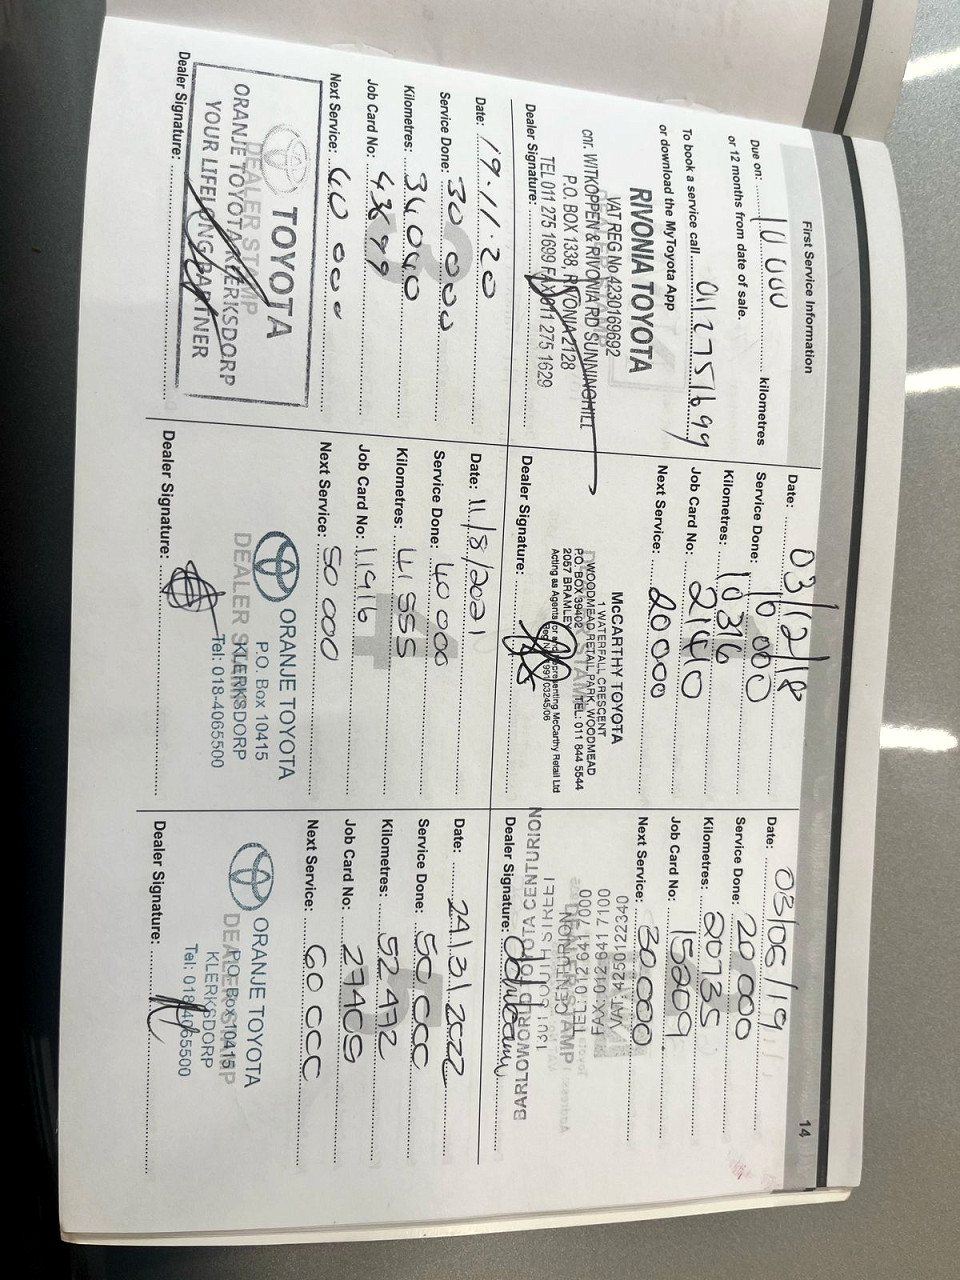 First Service Information
14
Due on: 10 000 kilometres
or 12 months from date of sale.
To book a service call 0112751699
or download the MyToyota App
RIVONIA TOYOTA
VAT REG.No 4230169692
cnr. WITKOPPEN & RIVONIA RD SUNNINGHILL
P.O. BOX 1338, RIVONIA 2128
TEL 011 275 1699 FAX 011 275 1629
Dealer Signature:
Date: 03/12/18
Service Done: 10 000
Kilometres: 10316
Job Card No: 21410
Next Service: 20 000
McCARTHY TOYOTA
1 WATERFALL CRESCENT
WOODMEAD RETAIL PARK, WOODMEAD
P.O. BOX 39402 TEL: 011 844 5544
2057 BRAMLEY
Acting as Agents for and representing McCarthy Retail Ltd
Dealer Signature:
Date: 03/06/19
Service Done: 20 000
Kilometres: 20735
Job Card No: 15209
Next Service: 30 000
VAT: 4250122340
FAX: 012 641 7100
TEL: 012 641 1000
CENTURION
BARLOWORLD TOYOTA CENTURION
Dealer Signature:
Date: 19.11.20
Service Done: 30 000
Kilometres: 34040
Job Card No:
Next Service: 40 000
TOYOTA
DEALER STAMP
ORANJE TOYOTA KLERKSDORP
YOUR LIFELONG PARTNER
Dealer Signature:
Date: 11/8/2021
Service Done: 40 000
Kilometres: 41555
Job Card No: 11916
Next Service: 50 000
ORANJE TOYOTA
P.O. Box 10415
DEALER STAMP
KLERKSDORP
Tel: 018-4065500
Dealer Signature:
Date: 24/3/2022
Service Done: 50 000
Kilometres: 52472
Job Card No:
Next Service: 60 000
ORANJE TOYOTA
P.O. Box 10415
DEALER STAMP
KLERKSDORP
Tel: 018-4065500
Dealer Signature: